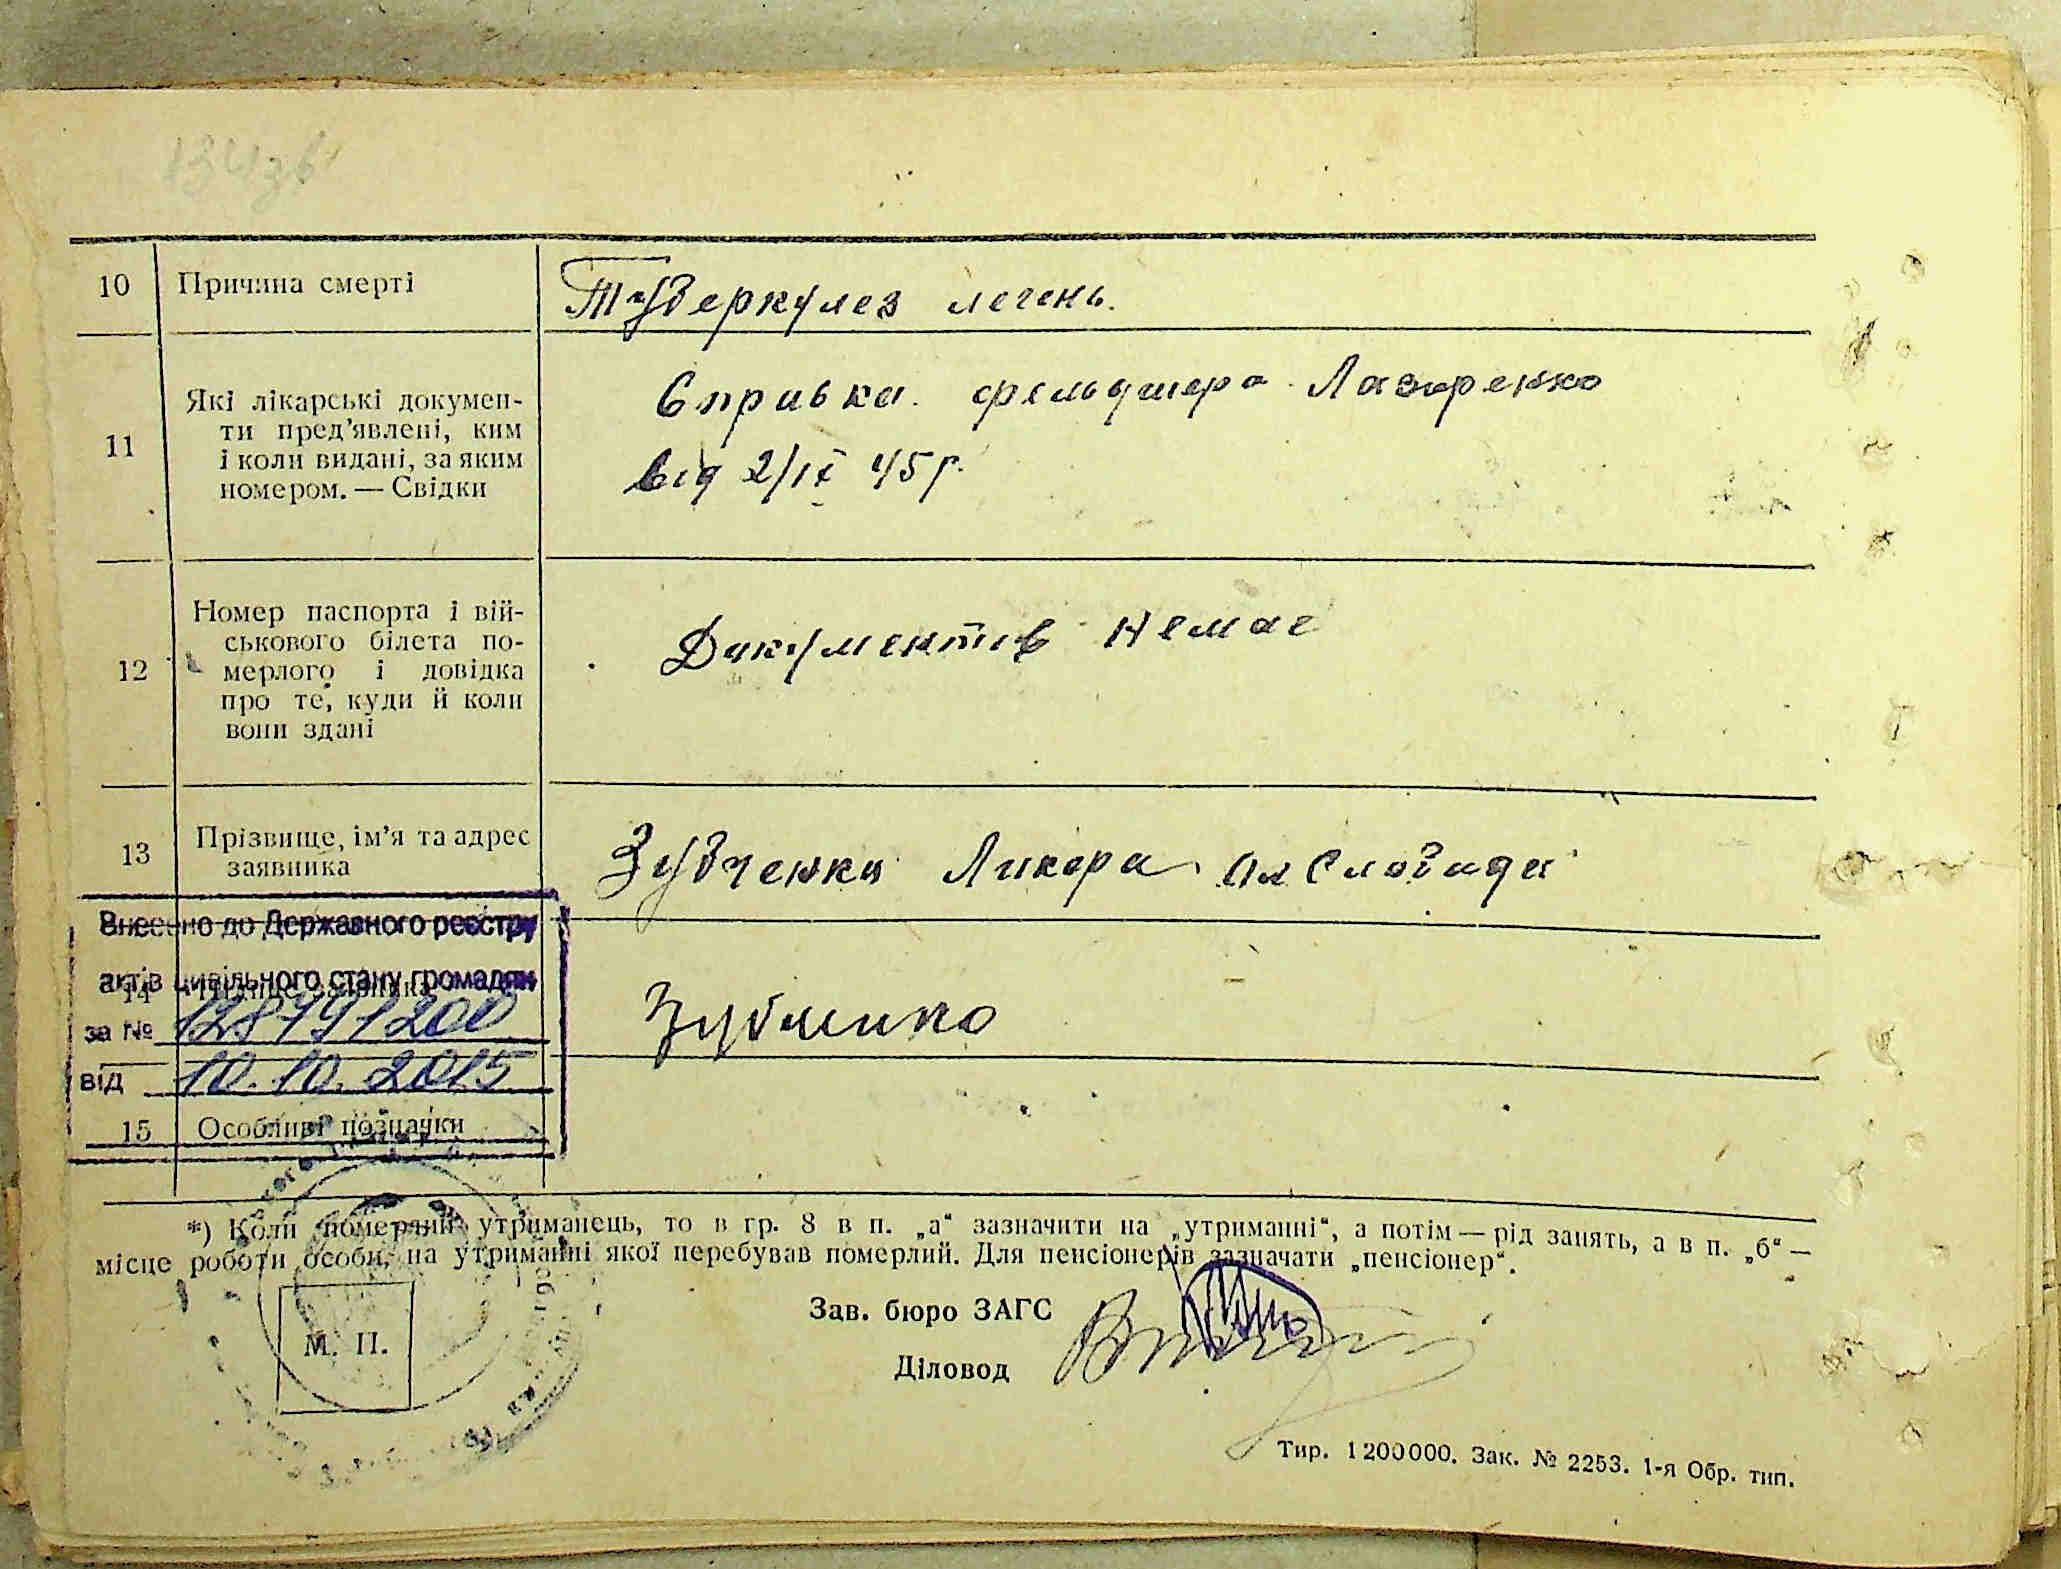 134зв
10 Причина смерті Туберкулез легень.
11 Які лікарські докумен-
ти пред'явлені, ким
і коли видані, за яким
номером. — Свідки
Справка фельдшера Лазаренко
від 2/ІХ 45 р.
12 Номер паспорта і вій-
ськового білета по-
мерлого і довідка
про те, куди й коли
вони здані
Документів немає
13 Прізвище, ім'я та адрес
заявника
Зубченко Ликера Слобода
Внесено до Державного реєстру
актів цивільного стану громадян
14
за № 128791200
від 10.10.2015
15 Особливі позначки
*) Коли померлий утриманець, то в гр. 8 в п. „а“ зазначити на „утриманні“, а потім — рід занять, а в п. „б“ —
місце роботи особи, на утриманні якої перебував померлий. Для пенсіонерів зазначати „пенсіонер“.
Зав. бюро ЗАГС
Діловод
М. П.
Тир. 1200000. Зак. № 2253. 1-я Обр. тип.